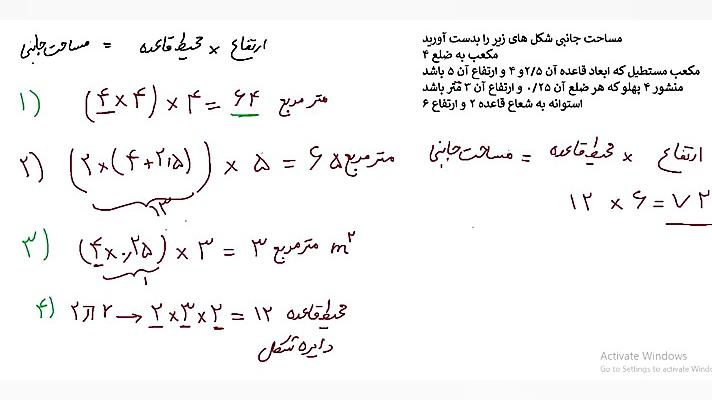 مساحت جانبی شکل های زیر را بدست آورید
مکعب به ضلع ۴
مکعب مستطیل که ابعاد قاعده آن ۲/۵ و ۴ و ارتفاع آن ۵ باشد
منشور ۴ پهلو که هر ضلع آن ۰/۲۵ و ارتفاع آن ۳ متر باشد
استوانه به شعاع قاعده ۲ و ارتفاع ۶
مساحت جانبی = محیط قاعده × ارتفاع
۱) (۴×۴) × ۴ = ۶۴ متر مربع
۲) (۲×(۴+۲٫۵)) × ۵ = ۶۵ متر مربع
۱۳
۳) (۴×۰٫۲۵) × ۳ = ۳ متر مربع m²
۱
۴) ۲πr → ۲×۳×۲ = ۱۲ محیط قاعده
دایره شکل
مساحت جانبی = محیط قاعده × ارتفاع
۱۲ × ۶ = ۷۲
Activate Windows
Go to Settings to activate Windo